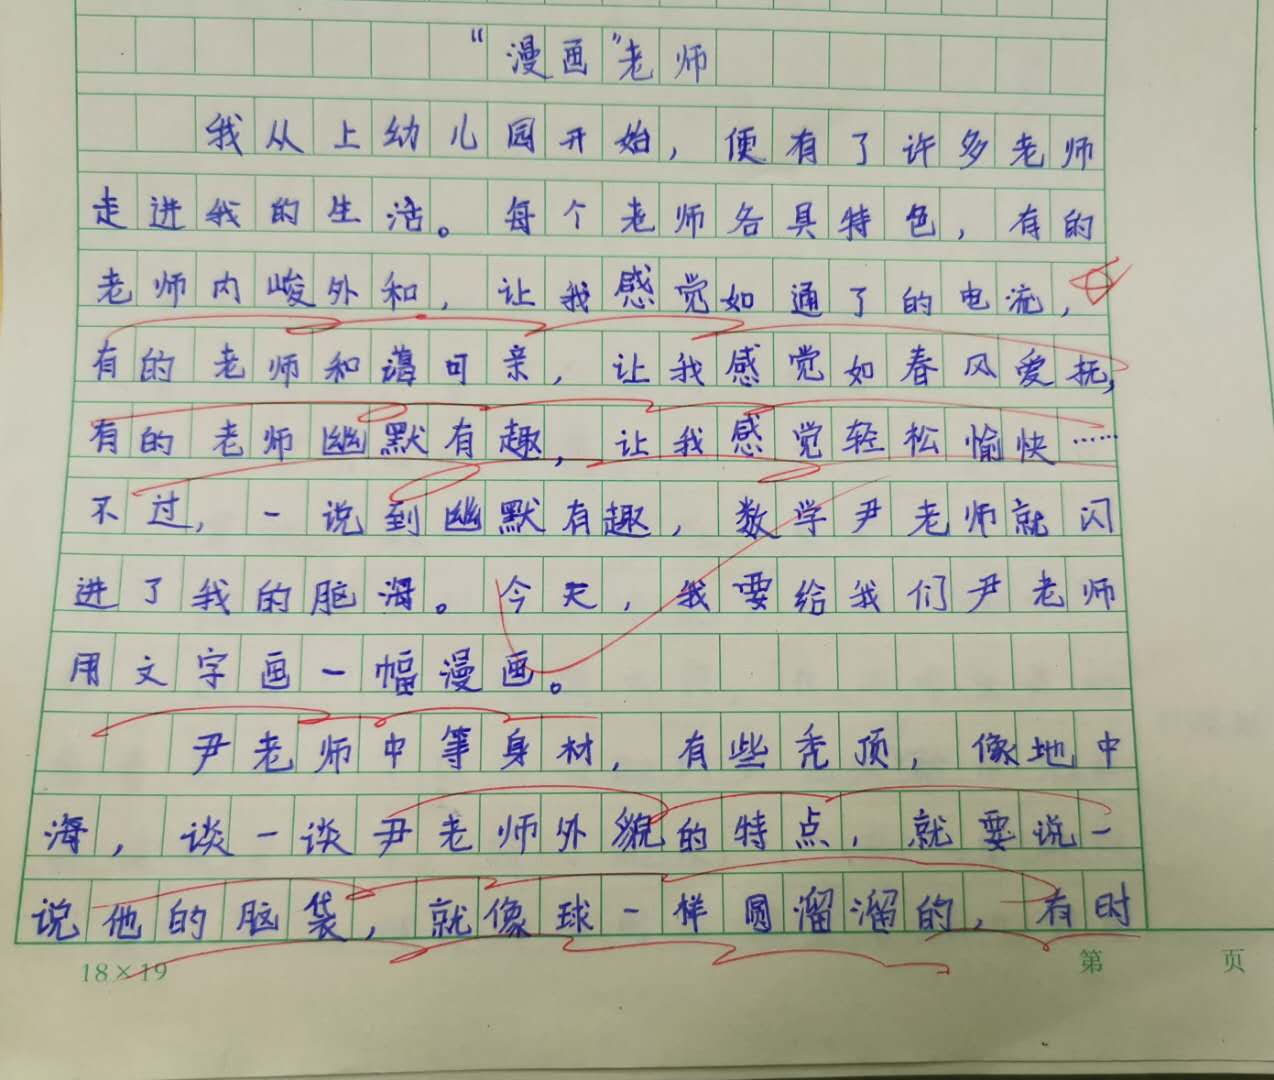 “漫画”老师
我从上幼儿园开始，便有了许多老师
走进我的生活。每个老师各具特色，有的
老师内峻外和，让我感觉如通了的电流，
有的老师和蔼可亲，让我感觉如春风爱抚，
有的老师幽默有趣，让我感觉轻松愉快……
不过，一说到幽默有趣，数学尹老师就闪
进了我的脑海。今天，我要给我们尹老师
用文字画一幅漫画。
尹老师中等身材，有些秃顶，像地中
海，谈一谈尹老师外貌的特点，就要说一
说他的脑袋，就像球一样圆溜溜的，有时
18×19
第 页